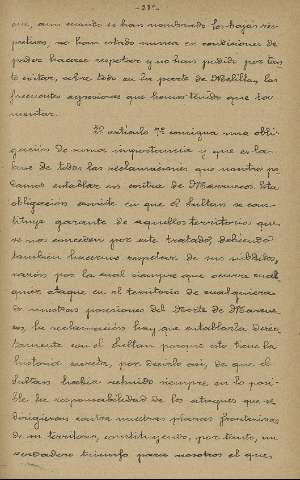 que, aun cuando se han nombrado los bajás res-
pectivos, no han estado nunca en condiciones de
poder hacerse respetar y no han podido por tan-
to evitar, sobre todo en la parte de Melilla, las
frecuentes agresiones que hemos tenido que la-
mentar.
El artículo 7º consigna una obli-
gación de suma importancia y que es la
base de todas las reclamaciones que nosotros po-
damos entablar en contra de Marruecos. Esta
obligación consiste en que el Sultan se cons-
tituye garante de aquellos territorios que
se nos conceden por este tratado, debiendo
también hacernos respetar de sus súbditos,
razón por la cual siempre que ocurra cual-
quier ataque en el territorio de cualquiera
de nuestras posesiones del Norte de Marrue-
cos, la reclamación hay que entablarla direc-
tamente con el Sultan porque esto tiene la
historia secreta, por decirlo así, de que el
Sultan había rehuido siempre en lo posi-
ble la responsabilidad de los ataques que se
dirigieran contra nuestras plazas fronterizas
de su territorio, constituyendo, por tanto, un
verdadero triunfo para nosotros el que